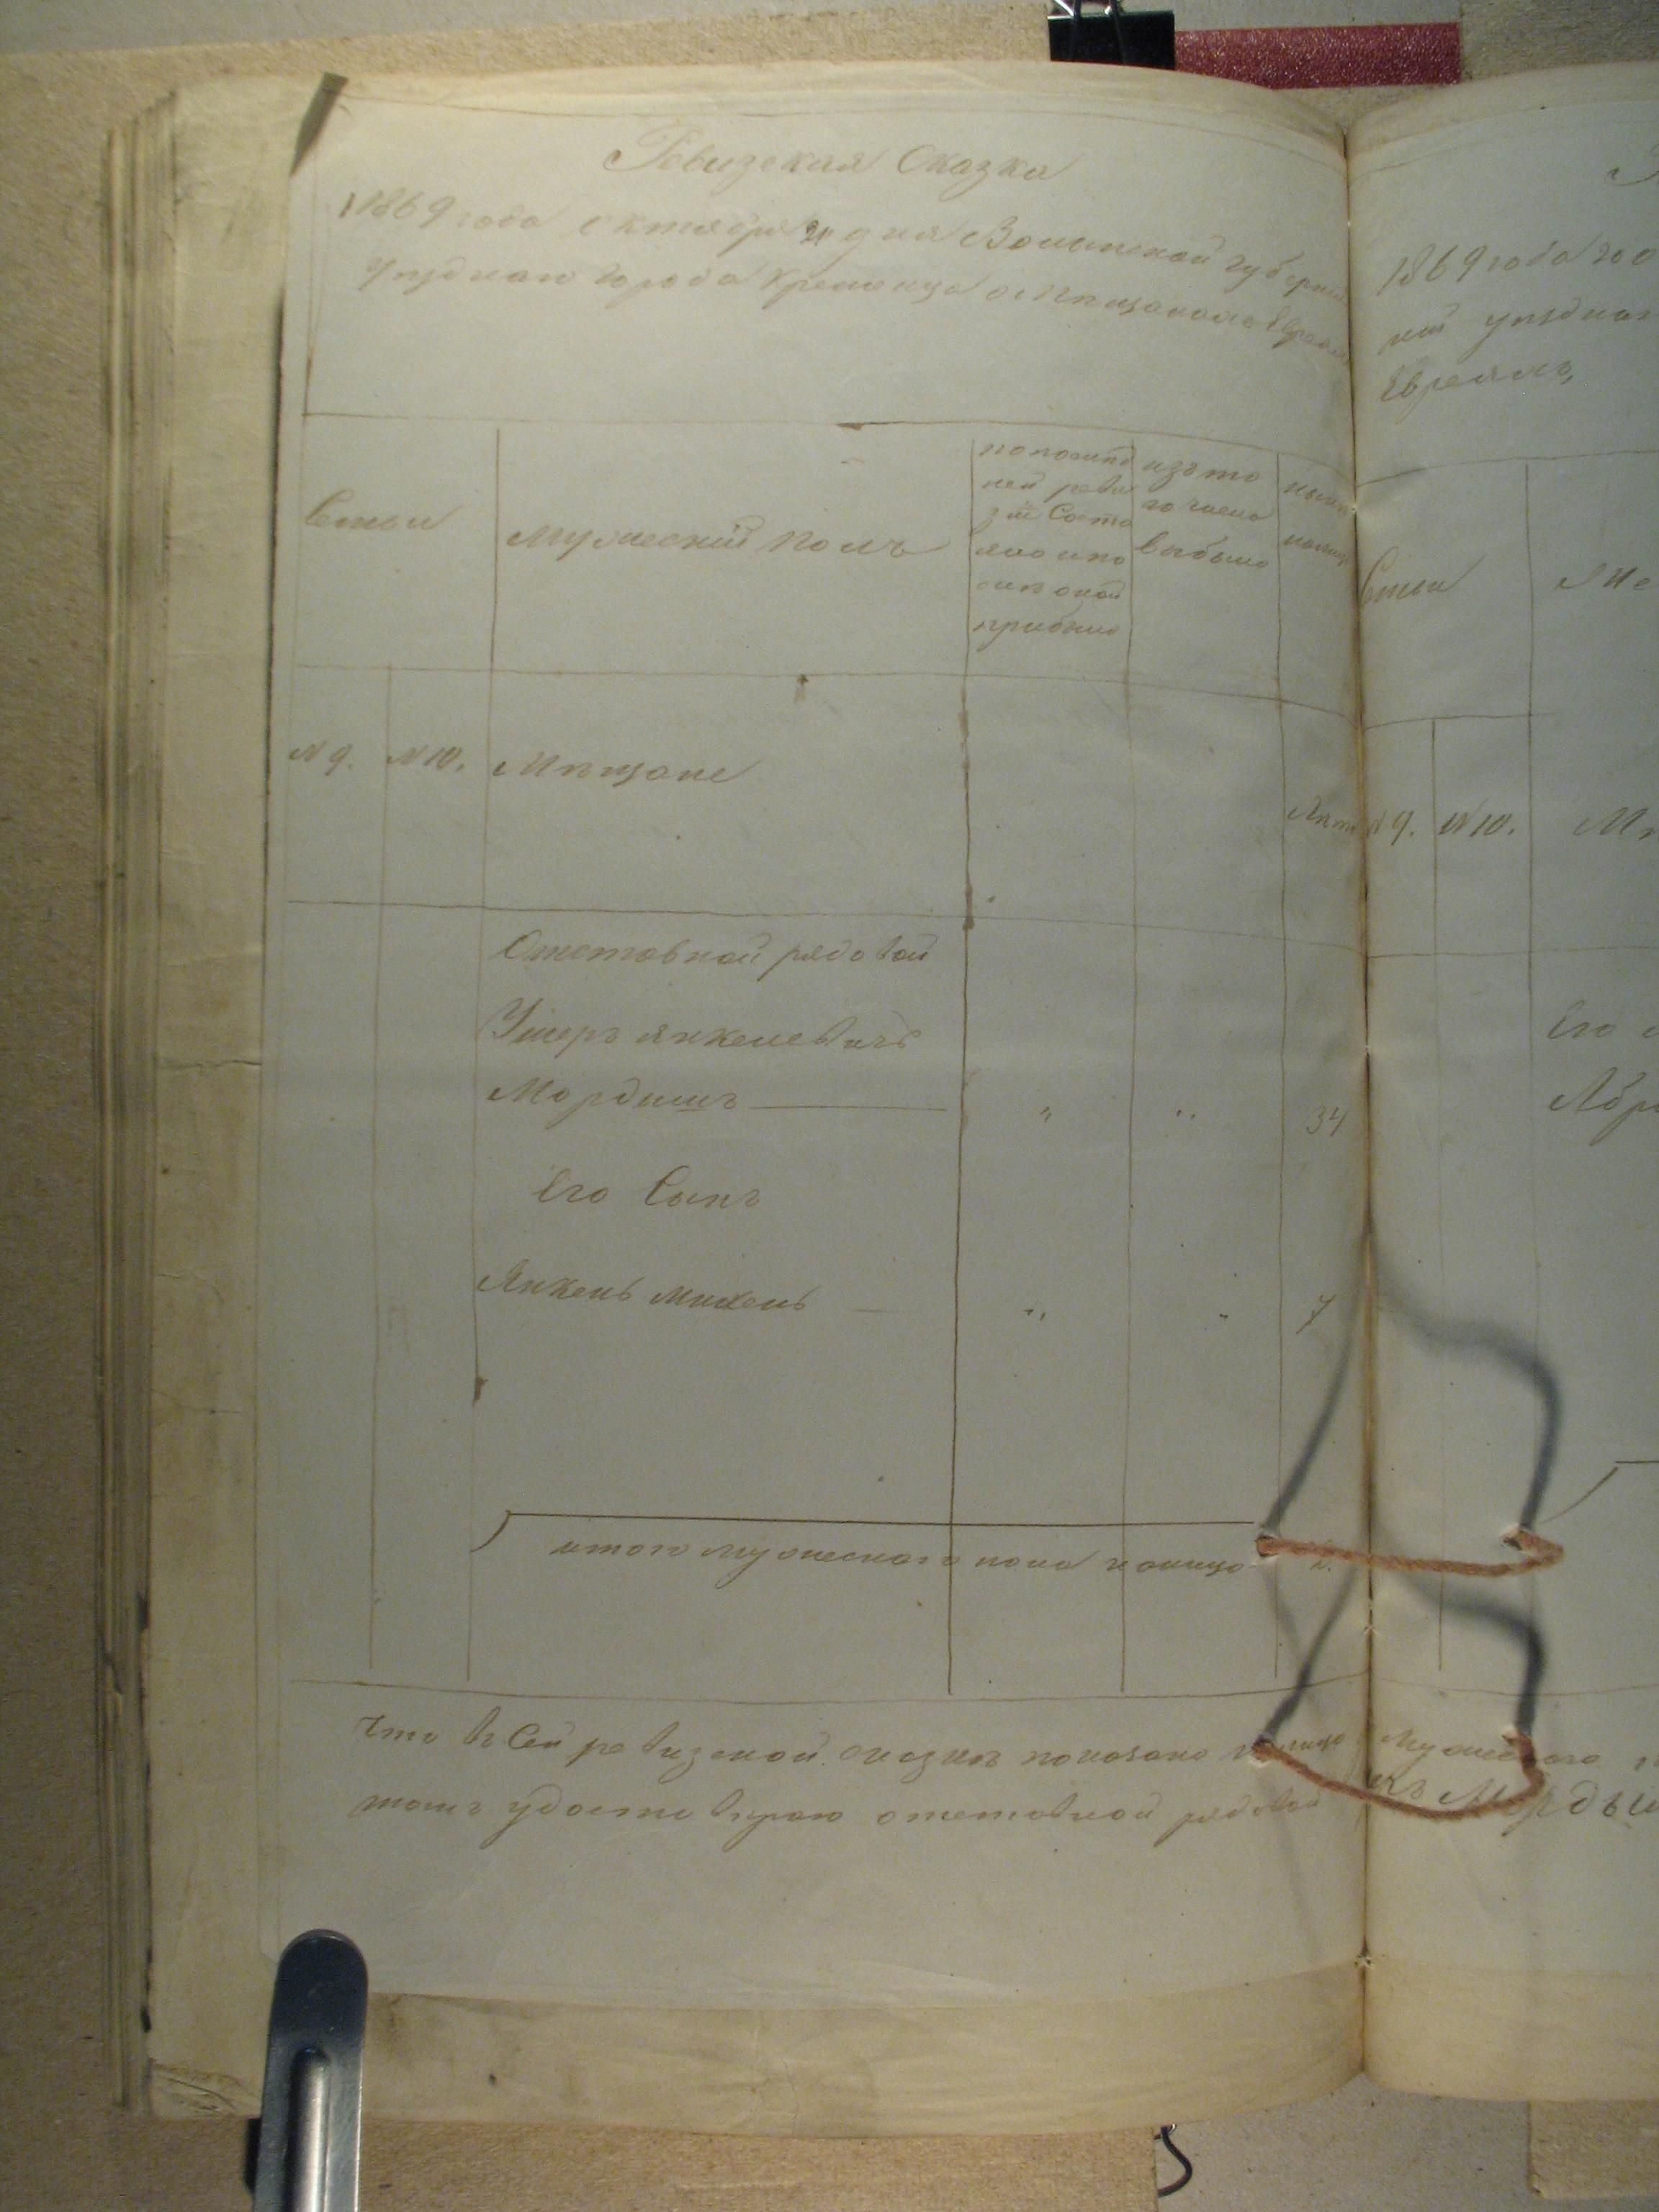 Ревизская Сказка
1869 года октября 21 дня Волынской губернии
уезднаго города Кременца о мещанахъ Евреяхъ
Семьи
мужескій полъ
по послед
ней реви
зіи Состо
яло и по
сле оной
прибыло
изъ то
го числа
выбыло
ныне
налицо
N 9.
N 10.
Мещане
Лета
Отставной рядовой
Ушеръ Янкелевичъ
Мордышъ
"
"
34
Его Сынъ
Янкель Михель
"
"
7
итого мужескаго пола налицо
2.
что въ Сей ревизской сказке показано налицо
томъ удостоверяю отставной рядовой
1869 года
уезднаго
Евреяхъ
Семьи
N 9.
N 10.
Его
Мужескаго